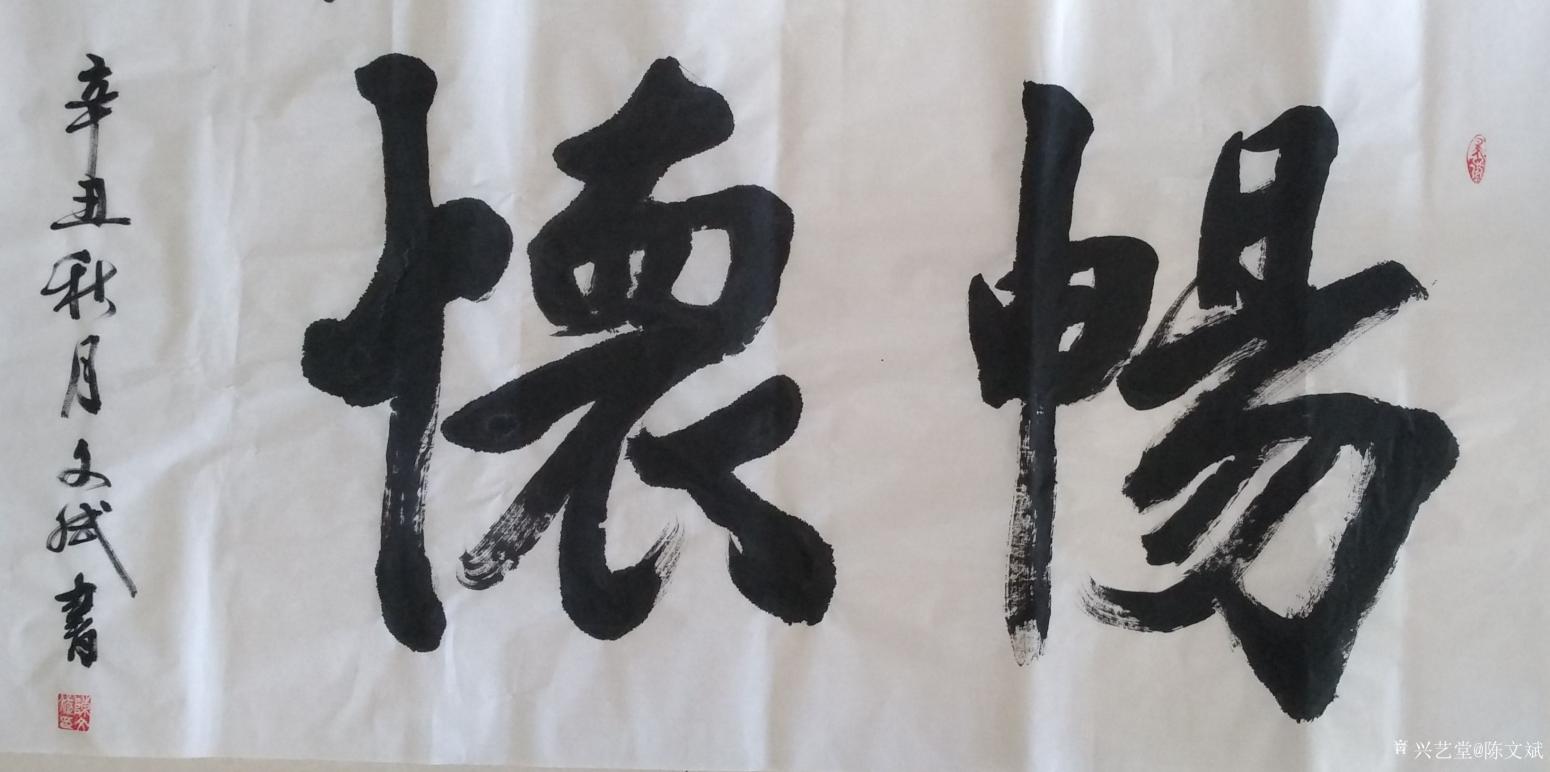 暢懷
辛丑秋月文斌書
兴艺堂@陈文斌